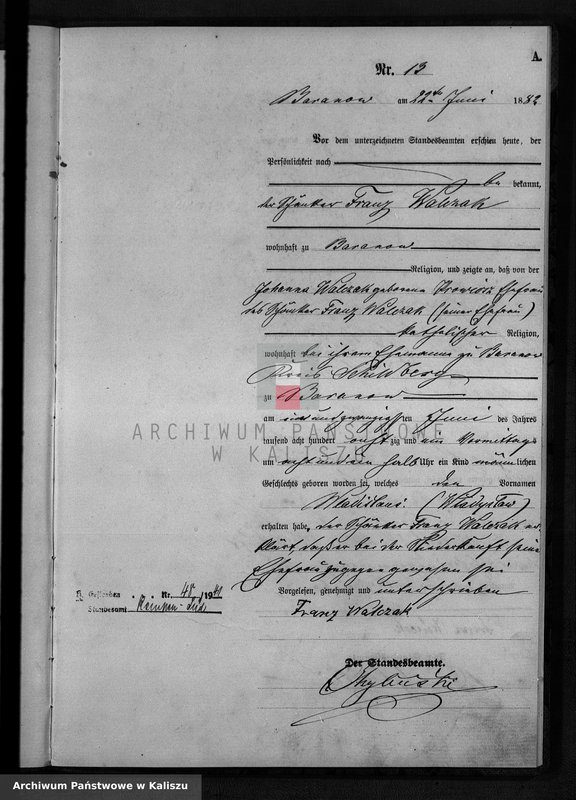 A.
Nr. 13
Baranow am 22ten Juni 1882
Vor dem unterzeichneten Standesbeamten erschien heute, der
Persönlichkeit nach
be kannt,
der Schänker Franz Walczak
wohnhaft zu Baranow
Religion, und zeigte an, daß von der
Johanna Walczak geborene Ehefrau
des Schänker Franz Walczak (seiner Ehefrau)
katholischer Religion,
wohnhaft bei ihrem Ehemanne zu Baranow
Kreis Schildberg
zu Baranow
am ein und zwanzigsten Juni des Jahres
tausend acht hundert acht zig und Vormittags
um acht und ein halb Uhr ein Kind männ lichen
Geschlechts geboren worden sei, welches den Vornamen
Wladislaus (Władysław)
erhalten habe, der Schänker Franz Walczak er-
klärt, daß er bei der Niederkunft seiner
Ehefrau zugegen gewesen sei
Vorgelesen, genehmigt und unterschrieben
Franz Walczak
Gestorben Nr. 1941
Standesamt Kempen-Süd
Der Standesbeamte.
ARCHIWUM PAŃSTWOWE
W KALISZU
Archiwum Państwowe w Kaliszu